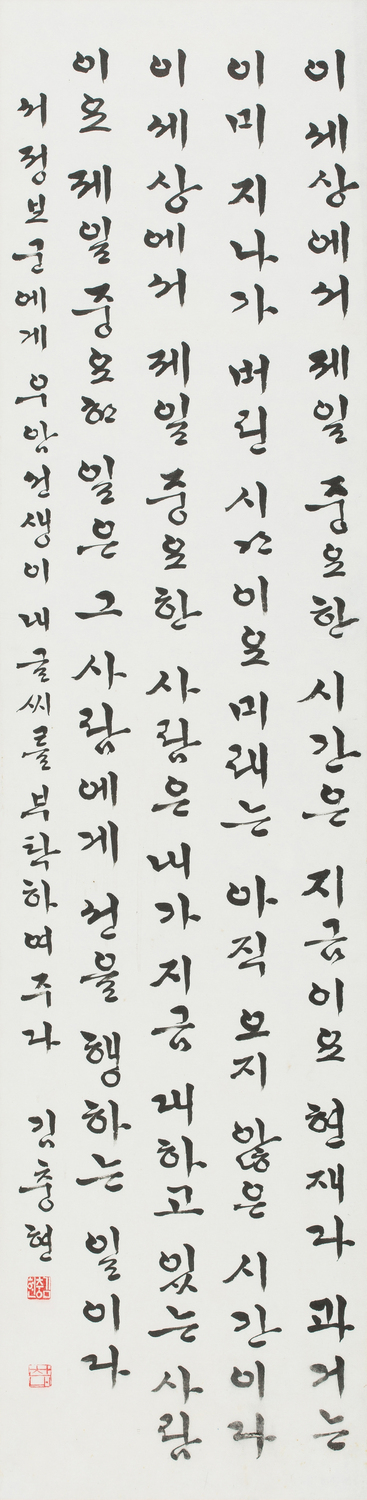 이 세상에서 제일 중요한 시간은 지금이요 현재라 과거는
이미 지나가 버린 시간이요 미래는 아직 오지 않은 시간이라
이 세상에서 제일 중요한 사람은 내가 지금 대하고 있는 사람
이요 제일 중요한 일은 그 사람에게 선을 행하는 일이라
서정보군에게 우암선생이 내 글씨를 부탁하여 주라 김충현